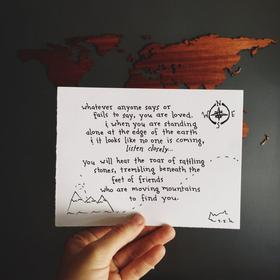 whatever anyone says or
fails to say, you are loved.
& when you are standing
alone at the edge of the earth
& it looks like no one is coming,
listen closely...
you will hear the roar of rattling
stones, trembling beneath the
feet of friends
who are moving mountains
to find you.
N
W E
S